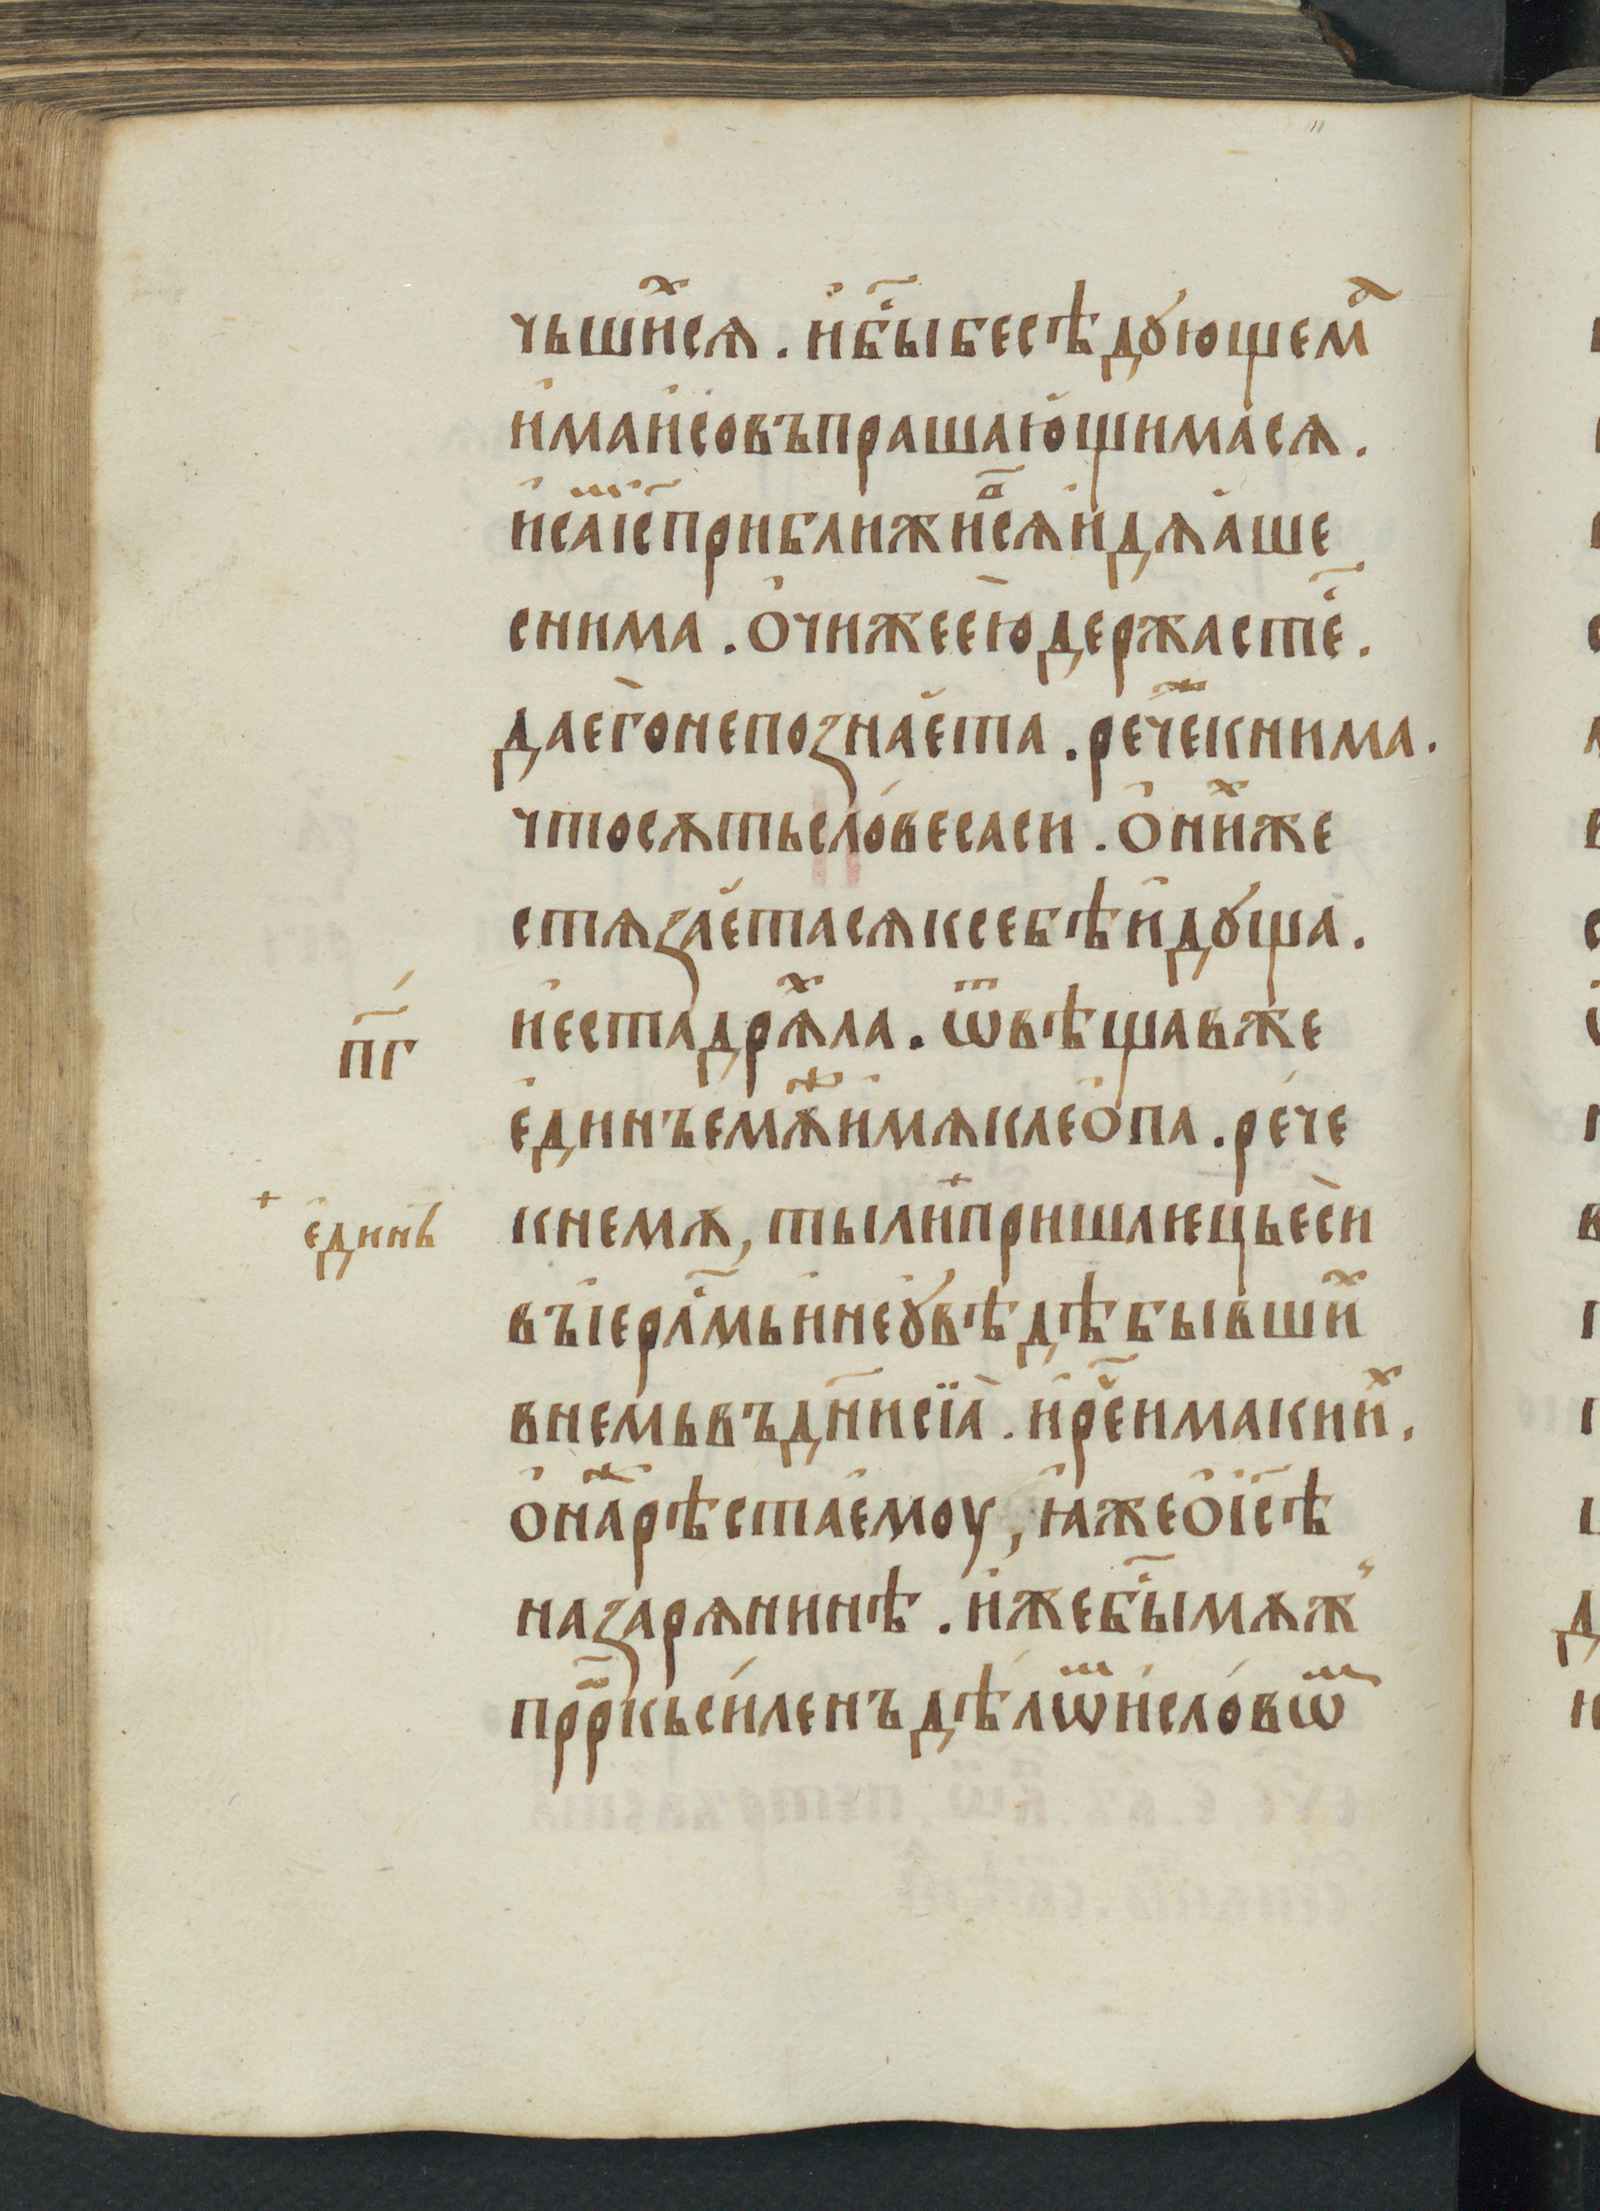 чьшиⷯсѧ . и҆бы҇ бесѣдꙋющемⷶ
и҆маи҆совъпрашаю҆щимасѧ .
и҆саⷨі҆с҃приближиⷧсѧ҆и҆дѧ҆аше
снима . О҆чижеею҆держастѣ҇е .
даег҆онепоꙁнае҆та . реⷤчекнима .
чтосѫтьслове́саси . О҆ниⷯже
стѧꙁае҆тасѧксебѣи҆дꙋща .
и҆естадрѧⷯла . ѿвѣщавже
пг҃
е҆динъемѫⷤи҆мѧклеО҆па . ре́че
кнемѫ , тыли⁺пришлецьес҆и
+ е҆динъ
въі҆ерл҇мьи҆неꙋвѣдѣбывшиⷯ
внемьвъдн҃исїа̀ . и҆ре҇чимакииⷯ .
О҆наⷤрѣстае҆моу , ꙗ҆жеО҆і҆с҃ѣ
наꙁарѧнинѣ . и҆жебы҇мѫж
прⷪ҇ркьси́ленъдѣлѡⷨи҆сло́вѡⷨ